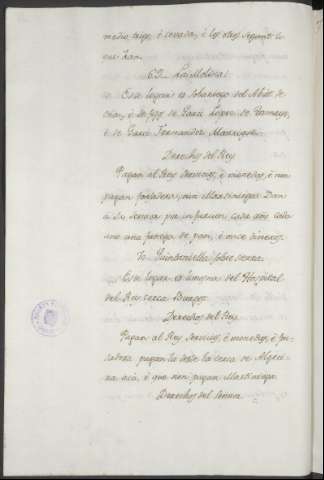 medio trigo, é cevada, é los otros segunt lo
que han.
69. La Molina.
Este logar es solariego del Abat de
é de fijos de Garci Lopez de
é de Garci Fernandez Manrique.
Derechos del Rey
Pagan al Rey servicios, é monedas, é non
pagan fonsadera, nin Martiniega. Dan
á su señor por infurcion cada año cada
uno una fanega de pan, é once dineros.
70. Quintaniella sobre serra.
Este logar es limosna del Hospital
del Rey cerca Burgos.
Derechos del Rey.
Pagan al Rey servicios, é monedas, é fon-
sadera pagan la desde la cerca de Algeci-
ra acá, é que non pagan Martiniega.
Derechos del señor.